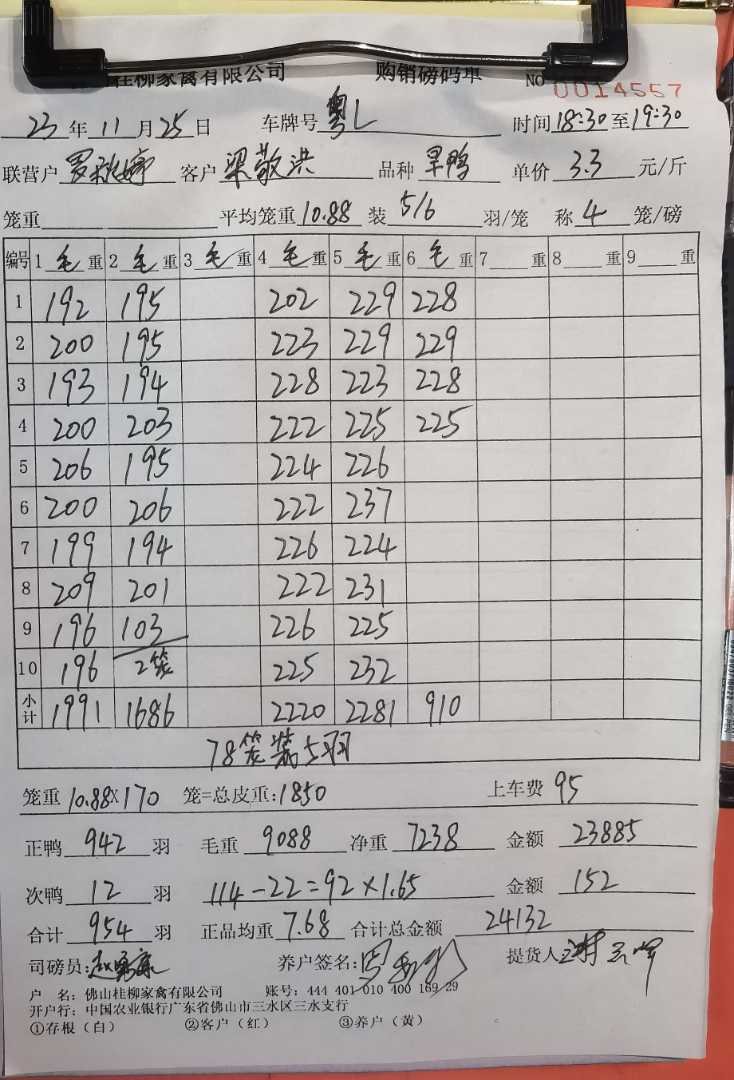 桂柳家禽有限公司 购销磅码单 NO 0014557
23 年 11 月 25 日 车牌号 粤L 时间 18:30 至 19:30
联营户 客户 梁敬洪 品种 旱鸭 单价 3.3 元/斤
笼重 平均笼重 10.88 装 5/6 羽/笼 称 4 笼/磅
编号 1 毛 重 2 毛 重 3 毛 重 4 毛 重 5 毛 重 6 毛 重 7 重 8 重 9 重
1 192 195 202 229 228
2 200 195 223 229 229
3 193 194 228 223 228
4 200 203 222 225 225
5 206 195 224 226
6 200 206 222 237
7 199 194 226 224
8 209 201 222 231
9 196 103 226 225
10 196 2笼 225 232
小计 1991 1686 2220 2281 910
78笼装5羽
笼重 10.88X170 笼=总皮重:1850 上车费 95
正鸭 942 羽 毛重 9088 净重 7238 金额 23885
次鸭 12 羽 114-22=92×1.65 金额 152
合计 954 羽 正品均重 7.68 合计总金额 24132
司磅员: 养户签名: 提货人
户 名: 佛山桂柳家禽有限公司 账号: 444 401 010 400 169 29
开户行: 中国农业银行广东省佛山市三水区三水支行
①存根(白) ②客户(红) ③养户(黄)